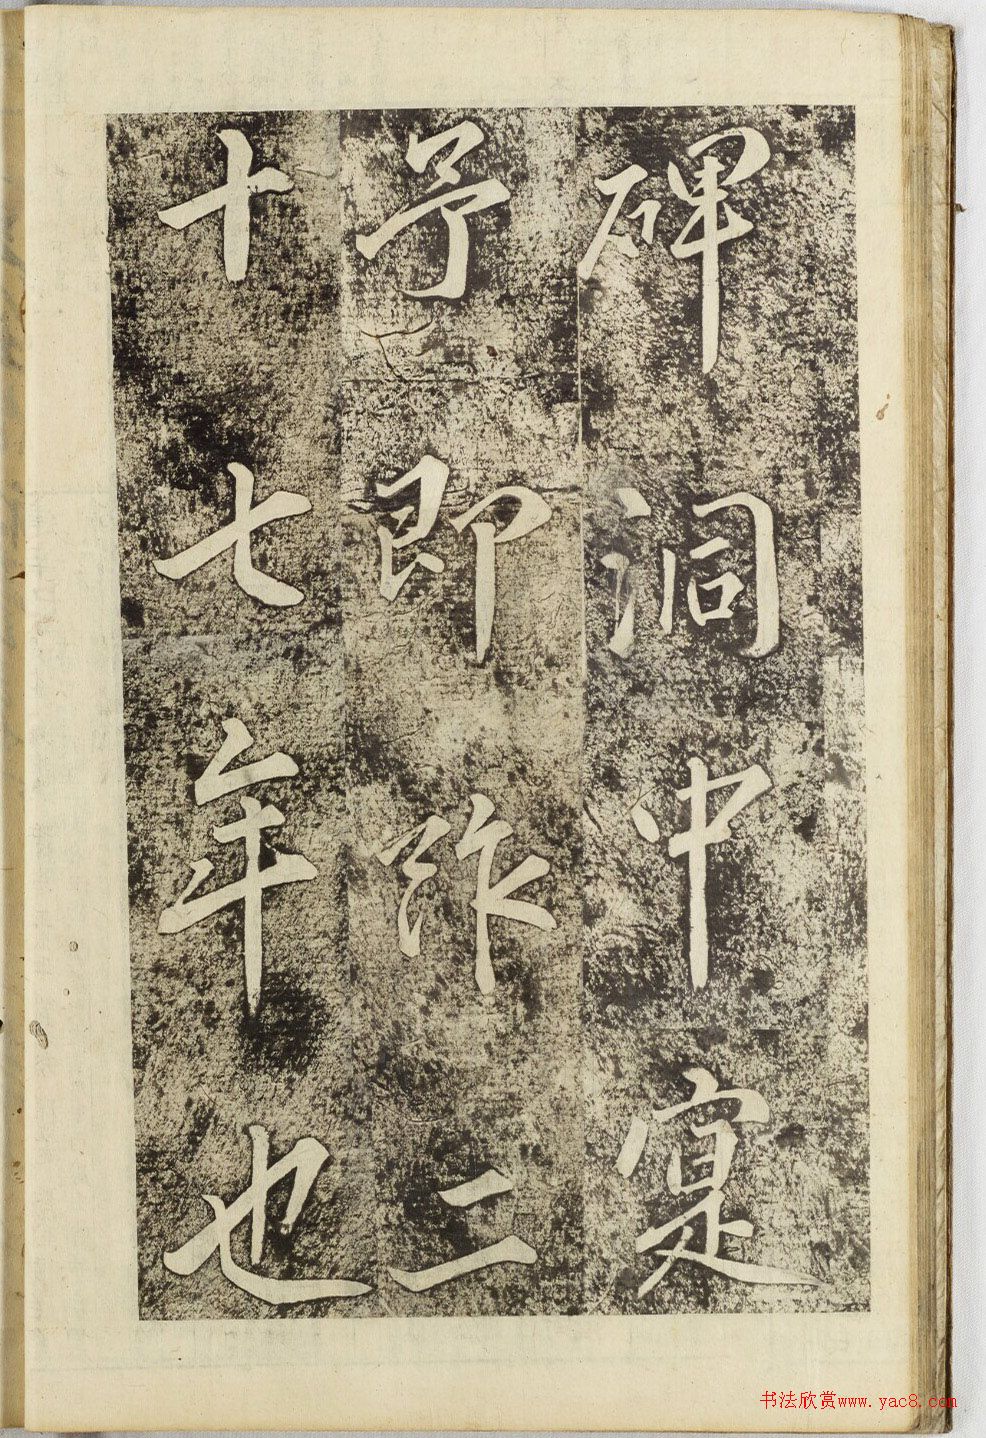 碑洞中寔
予即祚二
十七年也
书法欣赏www.yac8.com